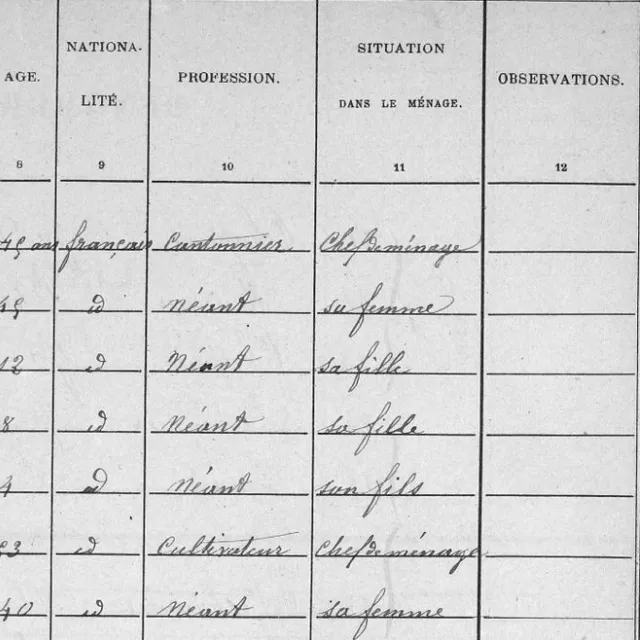 AGE. NATIONA- LITÉ. PROFESSION. SITUATION DANS LE MÉNAGE. OBSERVATIONS.
8 9 10 11 12
45 ans français Cantonnier Chef de ménage
45 id Néant sa femme
12 id Néant sa fille
8 id Néant sa fille
4 id Néant son fils
id Cultivateur Chef de ménage
40 id Néant sa femme